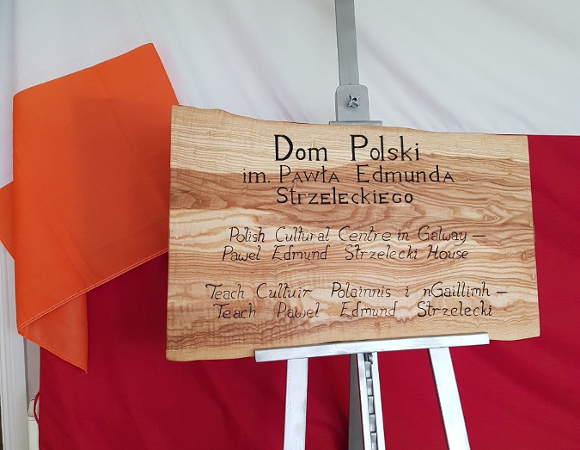 Dom Polski
im. Pawła Edmunda
Strzeleckiego
Polish Cultural Centre in Galway –
Pawel Edmund Strzelecki House
Teach Cultúir Polainnis i nGaillimh –
Teach Pawel Edmund Strzelecki